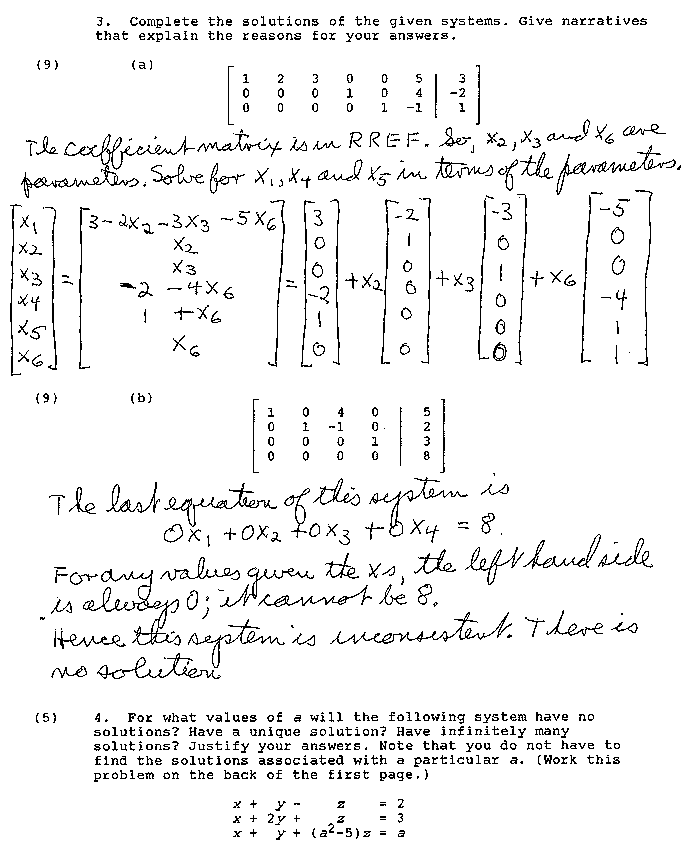 3. Complete the solutions of the given systems. Give narratives
that explain the reasons for your answers.
(9) (a)
1 2 3 0 0 5 | 3
0 0 0 1 0 4 | -2
0 0 0 0 1 -1 | 1
The coefficient matrix is in RREF. So, x2, x3 and x6 are
parameters. Solve for x1, x4 and x5 in terms of the parameters.
[x1] [3-2x2-3x3 -5x6] [3] [-2] [-3] [-5]
[x2] [x2] [0] [1] [0] [0]
[x3] = [x3] = [0] +x2 [0] +x3 [1] +x6 [0]
[x4] [-2 -4x6] [-2] [0] [0] [-4]
[x5] [1 +x6] [1] [0] [0] [1]
[x6] [x6] [0] [0] [0] [1]
(9) (b)
1 0 4 0 | 5
0 1 -1 0 | 2
0 0 0 1 | 3
0 0 0 0 | 8
The last equation of this system is
0x1 +0x2 +0x3 +0x4 = 8.
For any values given the xs, the left hand side
is always 0; it cannot be 8.
Hence this system is inconsistent. There is
no solution
(5) 4. For what values of a will the following system have no
solutions? Have a unique solution? Have infinitely many
solutions? Justify your answers. Note that you do not have to
find the solutions associated with a particular a. (Work this
problem on the back of the first page.)
x + y - z = 2
x + 2y + z = 3
x + y + (a²-5)z = a